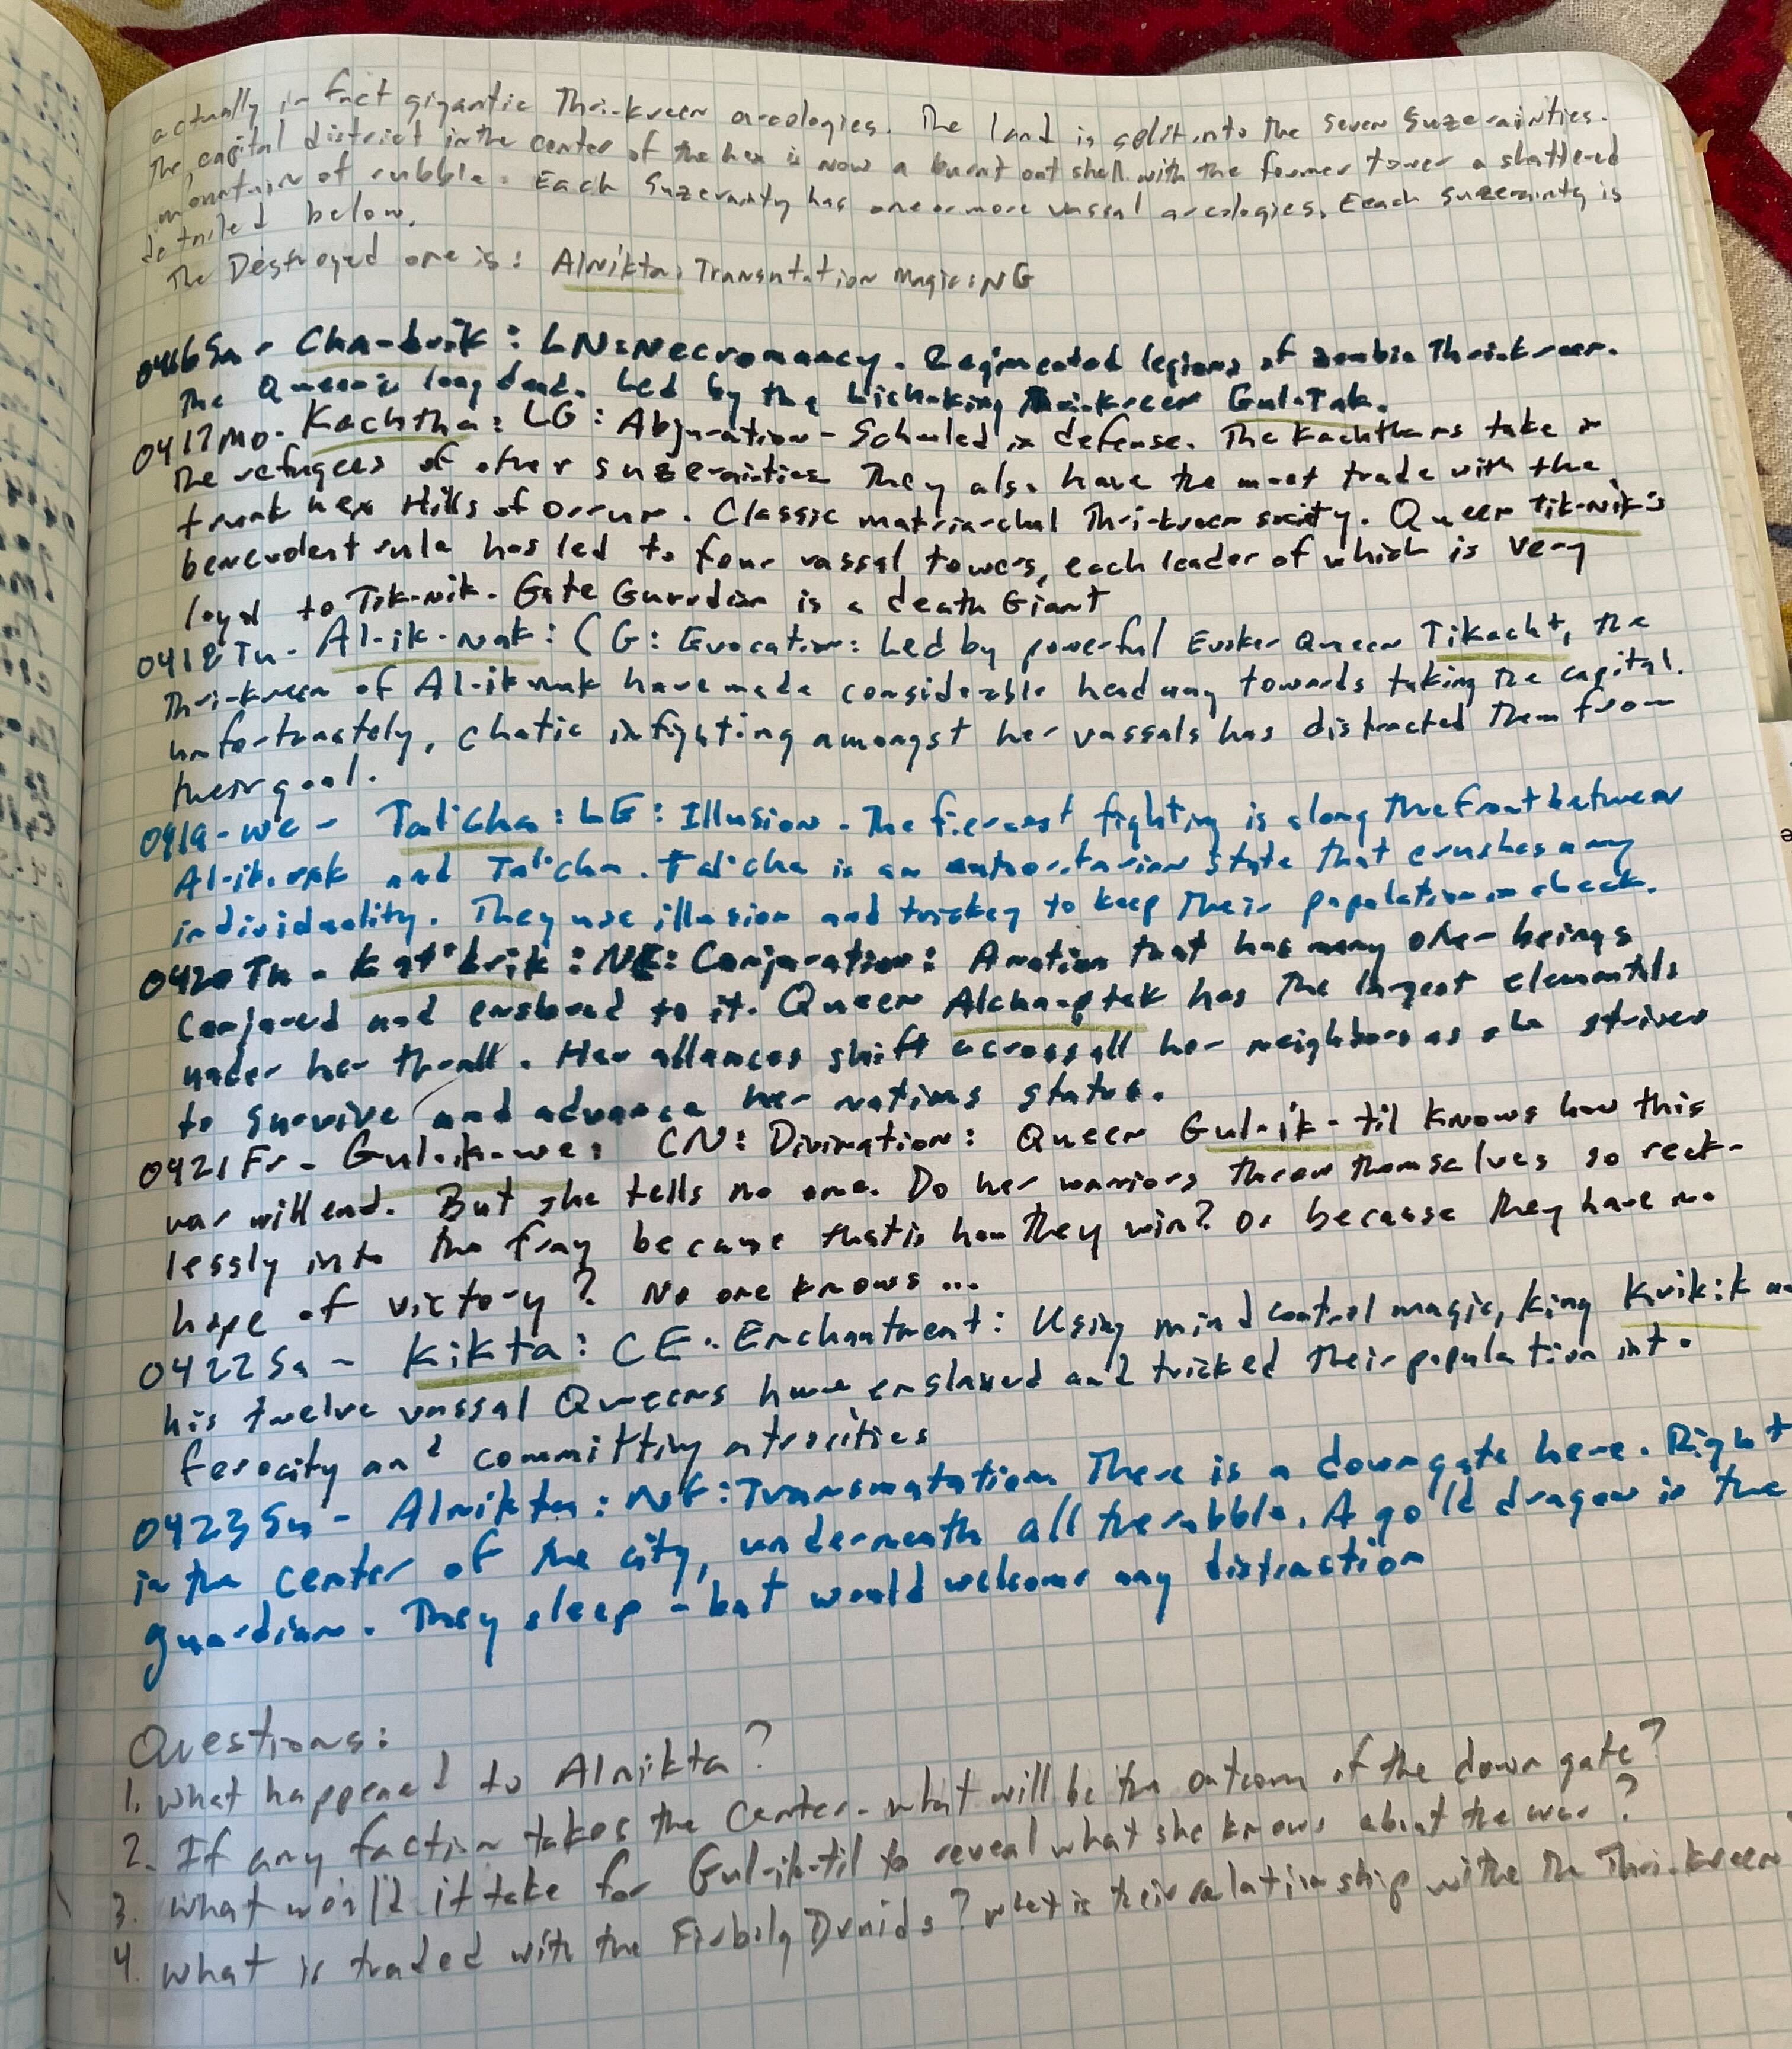 actually in fact gigantic Thri-kreen arcologies. The land is split into the seven suzerainties.
The capital district in the center of the hex is now a burnt out shell with the former tower a shattered
mountain of rubble. Each Suzerainty has one or more vassal arcologies. Eeach suzerainty is
detailed below.
The Destroyed one is: Alnikta: Transmutation Magic: NG
0416 Su - Cha-brik: LN: Necromancy. Regimented legions of zombie Thri-kreen.
The Queen is long dead. Led by the Lich-king Thri-kreen Gul-Tak.
0417 Mo - Kachtha: LG: Abjuration - Schooled in defense. The Kachthans take in
the refugees of other suzerainties They also have the most trade with the
hex Hills of . Classic matriarchal Thri-kreen society. Queen Tik-nik's
benevolent rule has led to four vassal towers, each leader of which is very
loyal to Tik-nik. Gate Guardian is a death Giant
0418 Tu - Al-ik-nak: CG: Evocation: Led by powerful Evoker Queen Tikacht, the
Thri-kreen of Al-ik-nak have made considerable headway towards taking the capital.
unfortunately, chatic infighting amongst her vassals has distracted them from
their goal.
0419 - We - Tat'cha: LE: Illusion - The fiercest fighting is along the front between
Al-ik-nak and Tat'cha. Tat'cha is an authoritarian state that crushes any
individuality. They use illusion and trickey to keep their population in check.
0420 Th - Kat'brik: NE: Conjuration: A nation that has many other beings
conjured and enslaved to it. Queen has the largest elementals
under her thrall. Her allances shift across all her neighbors as she strives
to survive and advance her nations status.
0421 Fr - Gul-ik-we: CN: Divination: Queen Gul-ik-til knows how this
war will end. But she tells no one. Do her warriors throw themselves so reck-
lessly into the fray because that is how they win? Or because they have no
hope of victory? No one knows...
0422 Sa - Kikta: CE: Enchantment: Using mind control magic, King Kvik:k and
his twelve vassal Queens have enslaved and tricked their population into
ferocity and committing atrocities
0423 Su - Alnikta: NG: Transmutation There is a down gate here. Right
in the center of the city, underneath all the rubble. A gold dragon is the
guardian. They sleep - but would welcome any distraction
Questions:
1. What happened to Alnikta?
2. If any faction takes the center - what will be the outcome of the down gate?
3. What would it take for Gul-ik-til to reveal what she knows about the war?
4. What is traded with the Firbolg Druids? What is their relationship withe the Thri-kreen